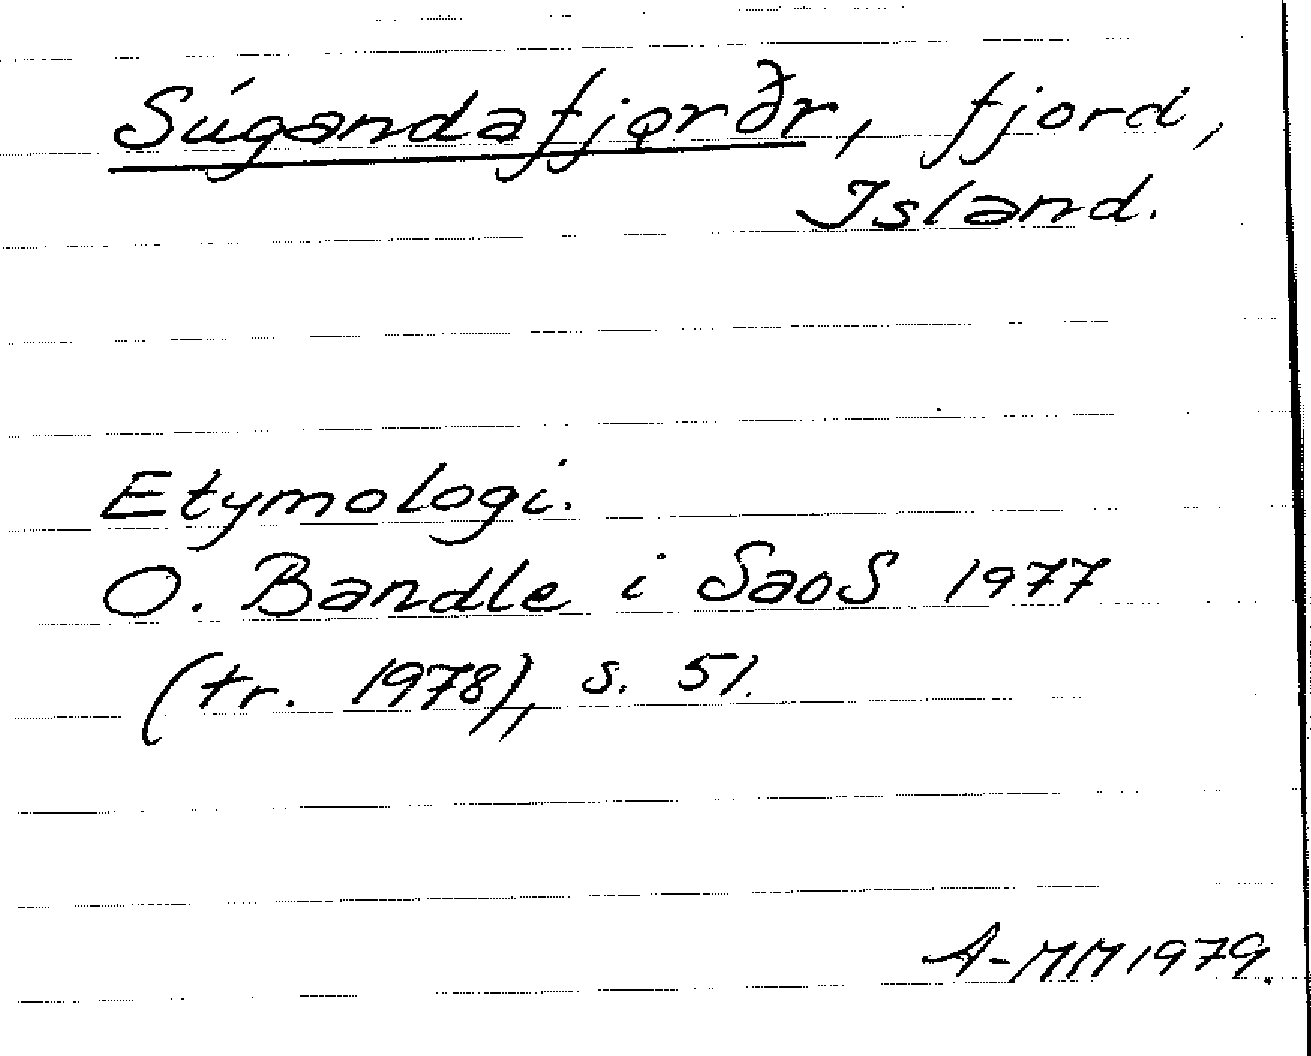 Súgandafjǫrðr, fjord,
Island.
Etymologi.
O. Bandle i SaoS 1977
(tr. 1978), s. 51.
A-MM 1979.